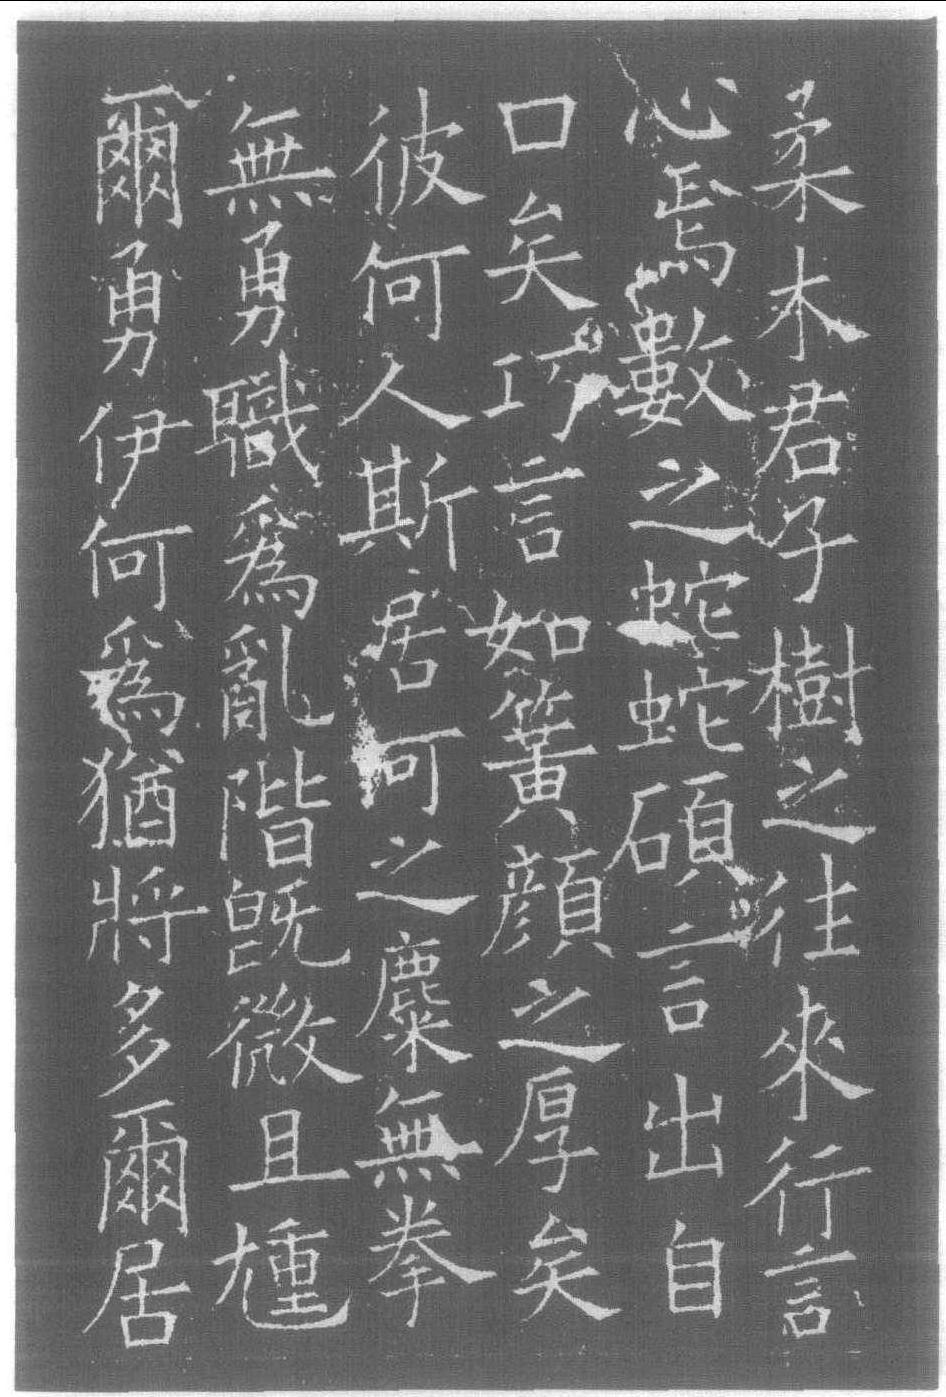 柔木君子樹之往來行言
心焉數之蛇蛇碩言出自
口矣巧言如簧顏之厚矣
彼何人斯居河之麋無拳
無勇職爲亂階既微且尰
爾勇伊何爲猶將多爾居